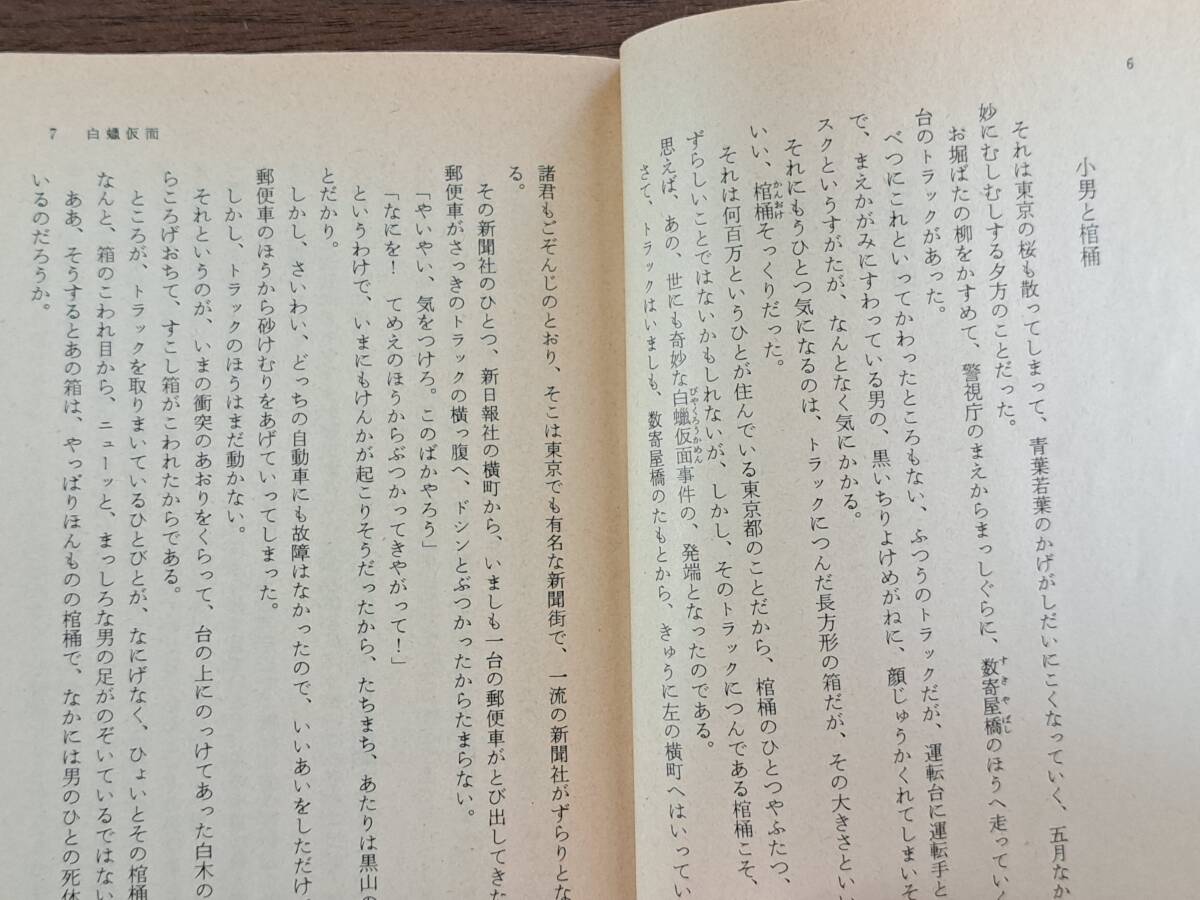 6
小男と棺桶
それは東京の桜も散ってしまって、青葉若葉のかげがしだいにこくなっていく、五月なか
妙にむしむしする夕方のことだった。
お堀ばたの柳をかすめて、警視庁のまえからまっしぐらに、数寄屋橋のほうへ走っていく
台のトラックがあった。
べつにこれといってかわったところもない、ふつうのトラックだが、運転台に運転手と
で、まえかがみにすわっている男の、黒いちりよけめがねに、顔じゅうかくれてしまいそ
スクというすがたが、なんとなく気にかかる。
それにもうひとつ気になるのは、トラックにつんだ長方形の箱だが、その大きさとい
いい、棺桶そっくりだった。
それは何百万というひとが住んでいる東京都のことだから、棺桶のひとつやふたつ、
ずらしいことではないかもしれないが、しかし、そのトラックにつんである棺桶こそ、
思えば、あの、世にも奇妙な白蠟仮面事件の、発端となったのである。
さて、トラックはいましも、数寄屋橋のたもとから、きゅうに左の横町へはいってい
7 白蠟仮面
諸君もごぞんじのとおり、そこは東京でも有名な新聞街で、一流の新聞社がずらりとな
る。
その新聞社のひとつ、新日報社の横町から、いましも一台の郵便車がとび出してきた
郵便車がさっきのトラックの横っ腹へ、ドシンとぶつかったからたまらない。
「やいやい、気をつけろ。このばかやろう」
「なにを！ てめえのほうからぶつかってきやがって！」
というわけで、いまにもけんかが起こりそうだったから、たちまち、あたりは黒山の
とだかり。
しかし、さいわい、どっちの自動車にも故障はなかったので、いいあいをしただけ
郵便車のほうから砂けむりをあげていってしまった。
しかし、トラックのほうはまだ動かない。
それというのが、いまの衝突のあおりをくらって、台の上にのっけてあった白木の
らころげおちて、すこし箱がこわれたからである。
ところが、トラックを取りまいているひとびとが、なにげなく、ひょいとその棺桶
なんと、箱のこわれ目から、ニューッと、まっしろな男の足がのぞいているではない
ああ、そうするとあの箱は、やっぱりほんものの棺桶で、なかには男のひとの死体
いるのだろうか。